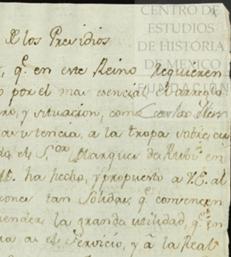 CENTRO DE
ESTUDIOS
DE HISTORIA
DE MEXICO
FUNDACION
Dlos Presidios
, q.e en este Reino requieren
por el mas esencial el arreglo
no, y situacion, como
asistencia, a la tropa sobre, cu
do, el S.or Marques de Rubi en
M. ha hecho, y propuesto a V.E. al
zones tan Solidas q.e convencen
tender la grande utilidad, q.e en
ra al Servicio, y â la Real